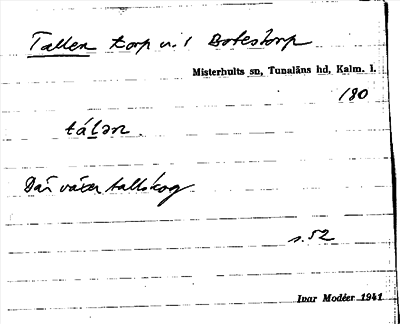 Tallen torp u. 1 Botestorp
Misterhults sn, Tunaläns hd, Kalm. l.
180
tálən.
Där växer tallskog
s. 52
Ivar Modéer 1941